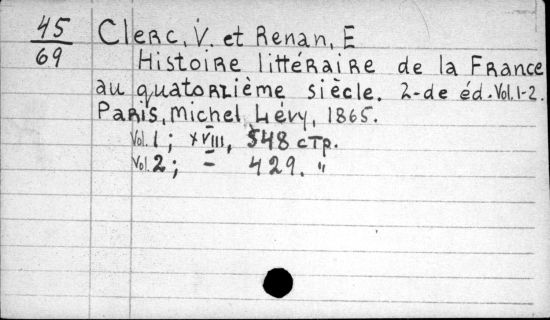 45
69
Clerc, V. et Renan, E
Histoire littéraire de la France
au quatorzième siècle. 2-de éd. Vol. 1-2.
Paris, Michel Lévy, 1865.
Vol. 1; XVIII, 548 стр.
Vol. 2; – 429. "